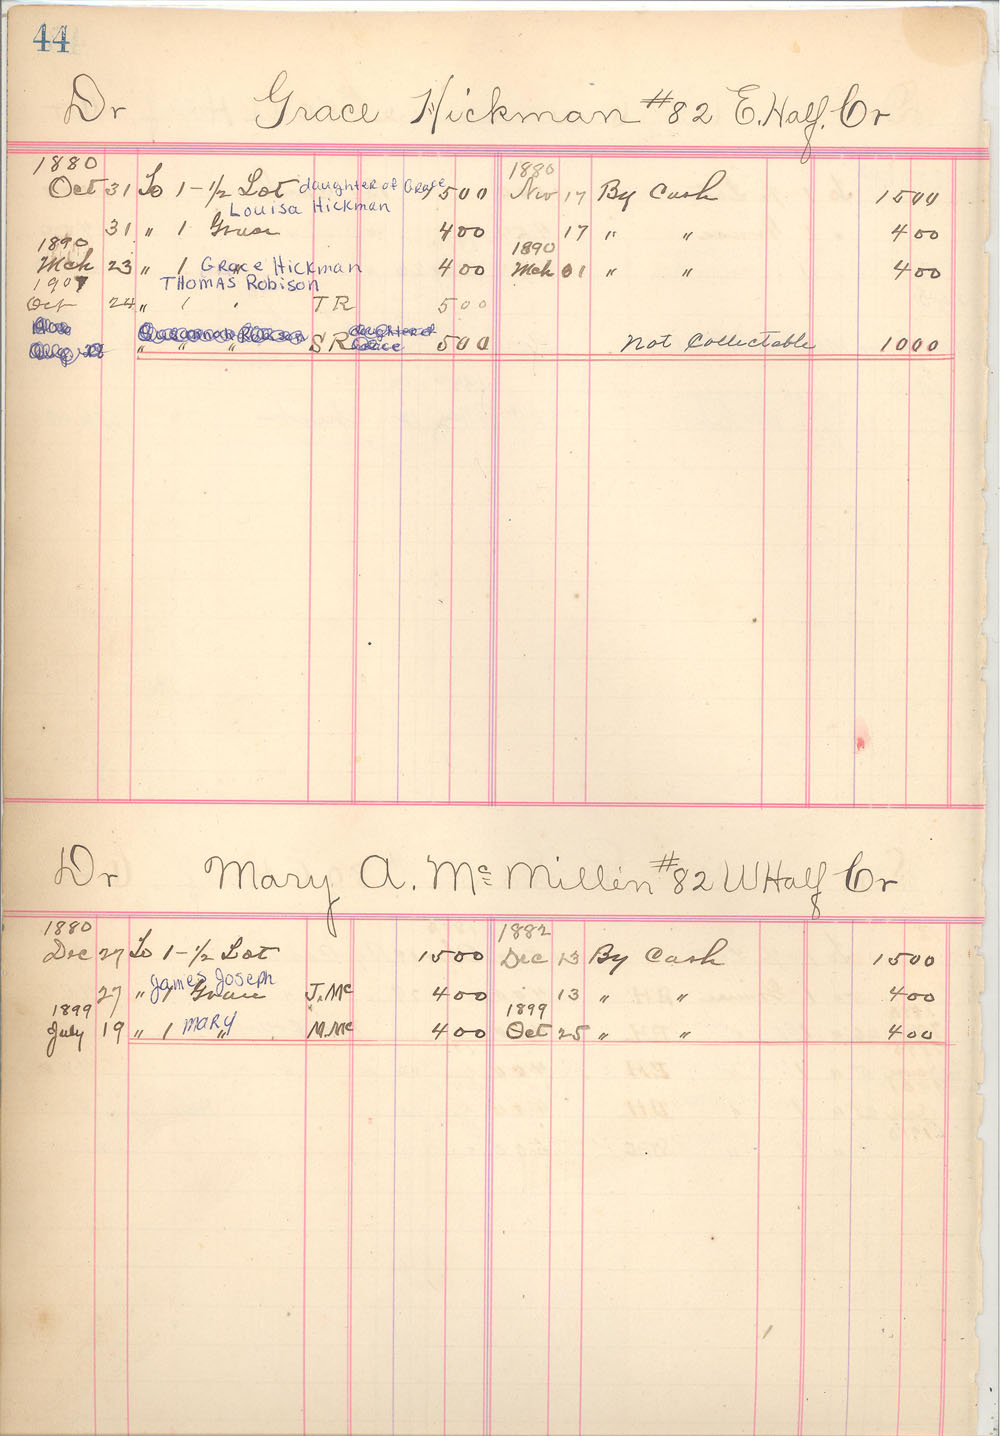 44
Dr Grace Hickman #82 E. Half. Cr
1880 1880
Oct 31 To 1-1/2 Lot daughter of Grace 1500 Nov 17 By Cash 1500
Louisa Hickman
31 " 1 Grave 400 17 " " 400
1890 1890
Mch 23 " 1 Grace Hickman " 400 Mch 31 " " 400
1907 Thomas Robison
Oct 24 " 1 " TR 500
" " " SR daughter of Grace 500 Not Collectable 1000
Dr Mary A. Mc Millin #82 W Half Cr
1880 1882
Dec 27 To 1-1/2 Lot 1500 Dec 13 By Cash 1500
James Joseph
27 " 1 Grave J. Mc 400 13 " " 400
1899 1899
July 19 " 1 Mary " M. Mc 400 Oct 25 " " 400